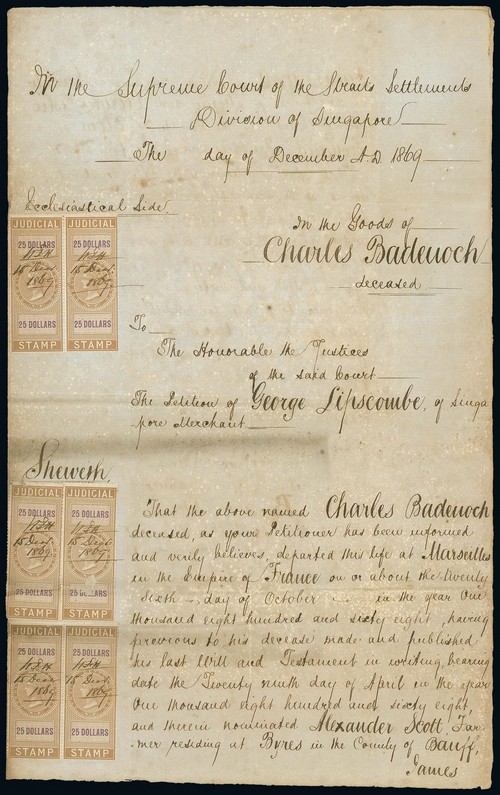 In the Supreme Court of the Straits Settlements
Division of Singapore
The day of December A.D. 1869
Ecclesiastical Side.
In the Goods of
Charles Badenoch
deceased
To
The Honorable the Justices
of the said Court
The Petition of George Lipscombe, of Singa
pore Merchant
Sheweth,
That the above named Charles Badenoch
deceased, as your Petitioner has been informed
and verily believes, departed this life at Marseilles
in the Empire of France on or about the twenty
sixth day of October in the year One
thousand eight hundred and sixty eight, having
previous to his decease made and published
his last Will and Testament in writing, bearing
date the Twenty ninth day of April in the year
One thousand eight hundred and sixty eight,
and therein nominated Alexander Scott, Far-
mer residing at Byres in the County of Banff,
James
JUDICIAL JUDICIAL
25 DOLLARS 25 DOLLARS
15 Decr. 15 Decr.
1869 1869
25 DOLLARS 25 DOLLARS
STAMP STAMP
JUDICIAL JUDICIAL
25 DOLLARS 25 DOLLARS
15 Decr. 15 Decr.
1869 1869
25 DOLLARS 25 DOLLARS
STAMP STAMP
JUDICIAL JUDICIAL
25 DOLLARS 25 DOLLARS
15 Decr. 15 Decr.
1869 1869
25 DOLLARS 25 DOLLARS
STAMP STAMP